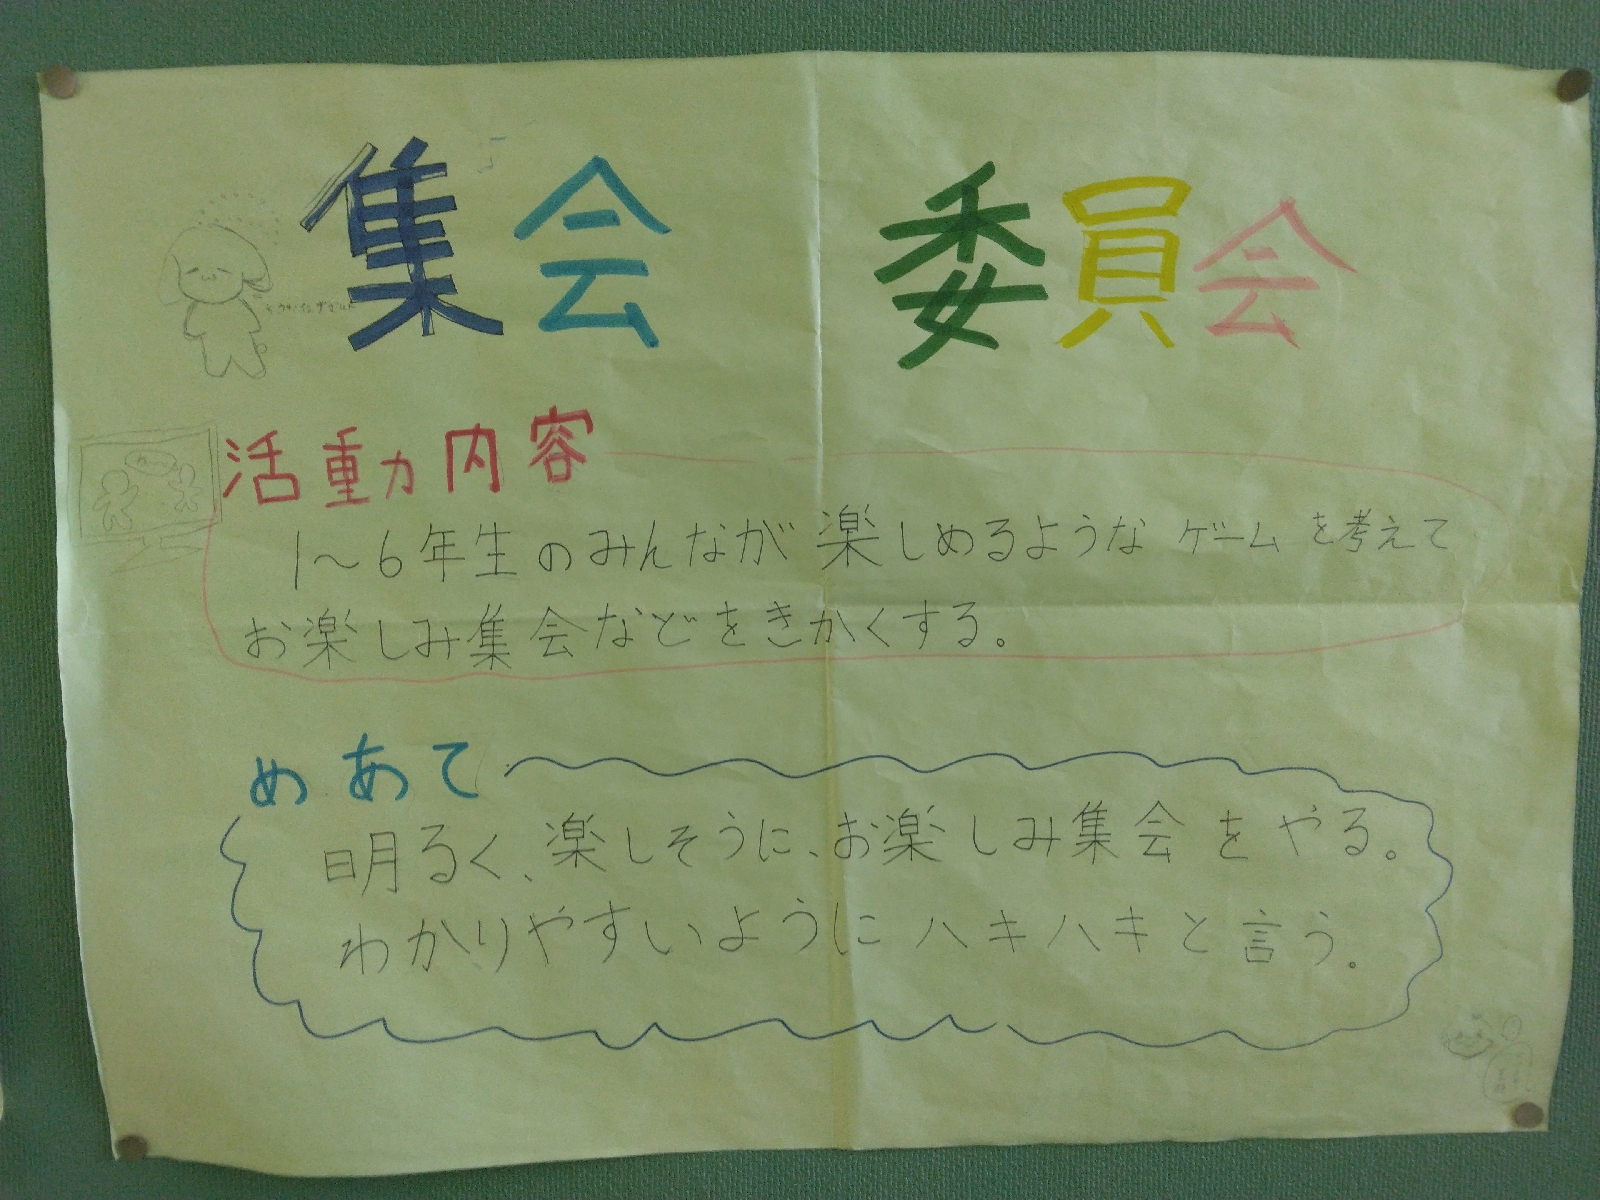 集会 委員会
活動内容
1〜6年生のみんなが楽しめるような ゲームを考えて
お楽しみ集会などをきかくする。
めあて
明るく、楽しそうに、お楽しみ集会をやる。
わかりやすいようにハキハキと言う。